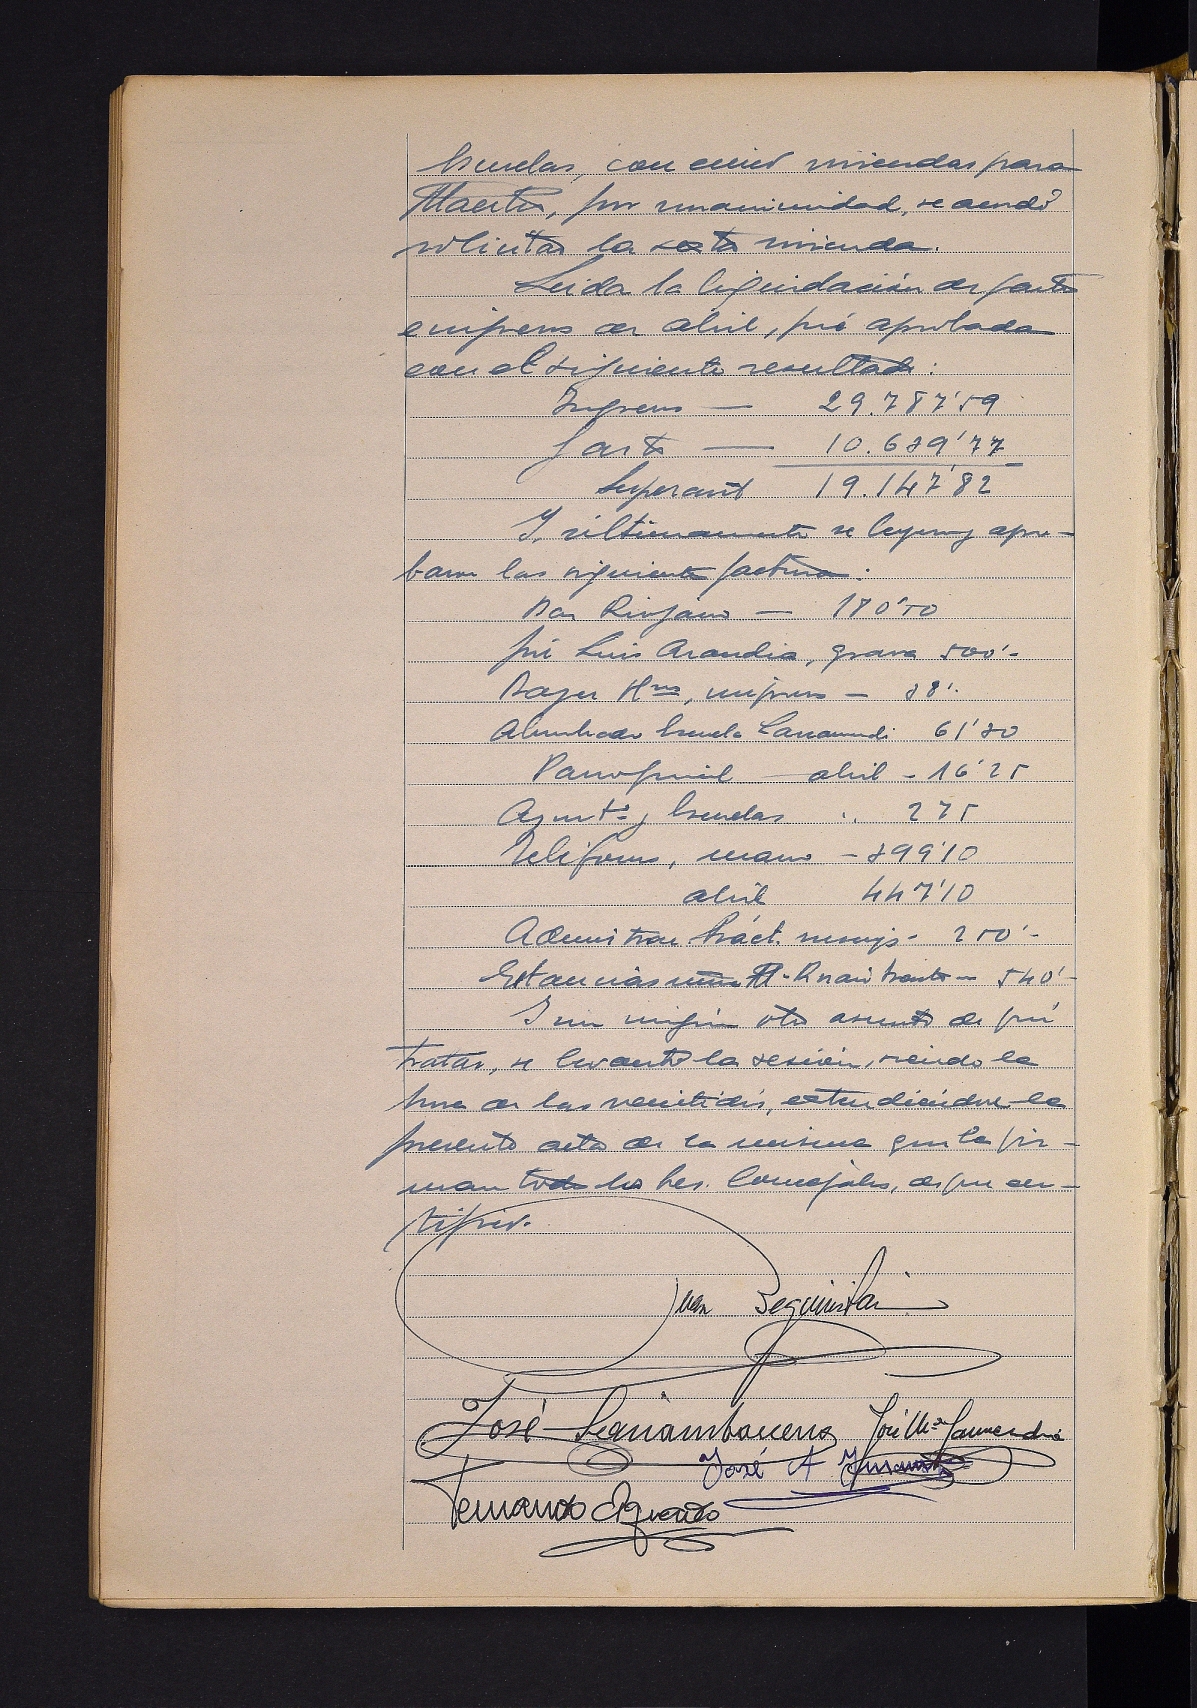 Escuelas, con cinco viviendas para
Maestros, por unanimidad, se acordó
solicitar la sexta vivienda.
Leida la liquidación de gastos
e ingresos de abril, fué aprobada
con el siguiente resultado:
Ingresos — 29.787'59
Gastos — 10.639'77
Superavit 19.147'82
Y, ultimamente se leyeron y apro-
baron las siguientes facturas:
Bar Riojano — 180'50
José Luis Arandia, grava 500'-
Hnos, impresos — 38'-
Alumbrado Escuela Larramendi 61'30
abril - 16'25
Ayuntº y Escuelas " 275
Teléfonos, marzo - 399'10
abril 447'10
250'-
Estancias 540'-
Y sin ningún otro asunto de que
tratar, se levantó la sesión, siendo la
hora de las veintidós, extendiéndose la
presente acta de la misma que la fir-
man todos los Sres. Concejales, de que cer-
tifico.
Juan Beguiristain
José
José Mª
José A
Fernando